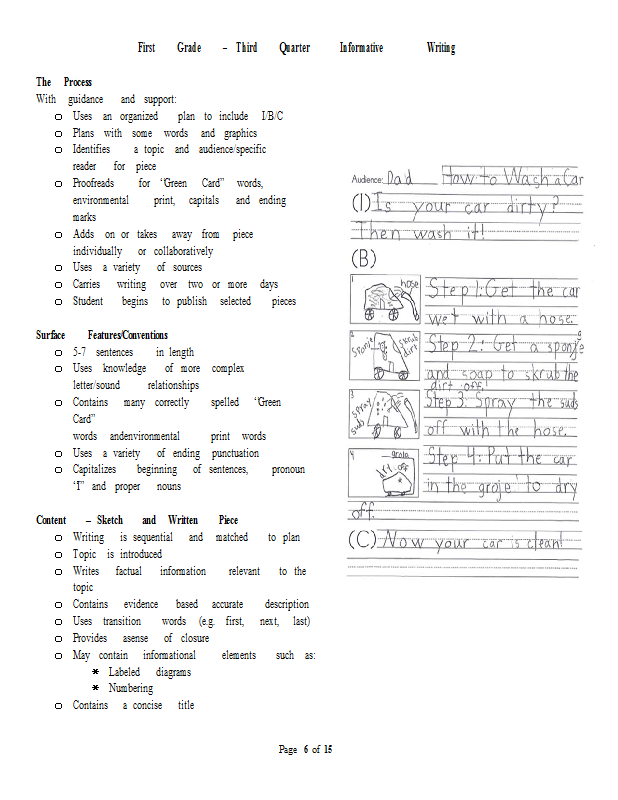 First Grade – Third Quarter Informative Writing
The Process
With guidance and support:
Uses an organized plan to include I/B/C
Plans with some words and graphics
Identifies a topic and audience/specific
reader for piece
Proofreads for “Green Card” words,
environmental print, capitals and ending
marks
Adds on or takes away from piece
individually or collaboratively
Uses a variety of sources
Carries writing over two or more days
Student begins to publish selected pieces
Surface Features/Conventions
5-7 sentences in length
Uses knowledge of more complex
letter/sound relationships
Contains many correctly spelled “Green
Card”
words andenvironmental print words
Uses a variety of ending punctuation
Capitalizes beginning of sentences, pronoun
“I” and proper nouns
Content – Sketch and Written Piece
Writing is sequential and matched to plan
Topic is introduced
Writes factual information relevant to the
topic
Contains evidence based accurate description
Uses transition words (e.g. first, next, last)
Provides asense of closure
May contain informational elements such as:
* Labeled diagrams
* Numbering
Contains a concise title
Audience: Dad How to Wash a Car
(I) Is your car dirty?
Then wash it!
(B)
1 hose
Step 1: Get the car
wet with a hose.
2 sponje skrub dirt
Step 2: Get a sponge
and soap to skrub the
dirt off.
3 spray sub
Step 3: Spray the suds
off with the hose.
4 groje dry off
Step 4: Put the car
in the groje to dry
off.
(C) Now your car is clean!
Page 6 of 15